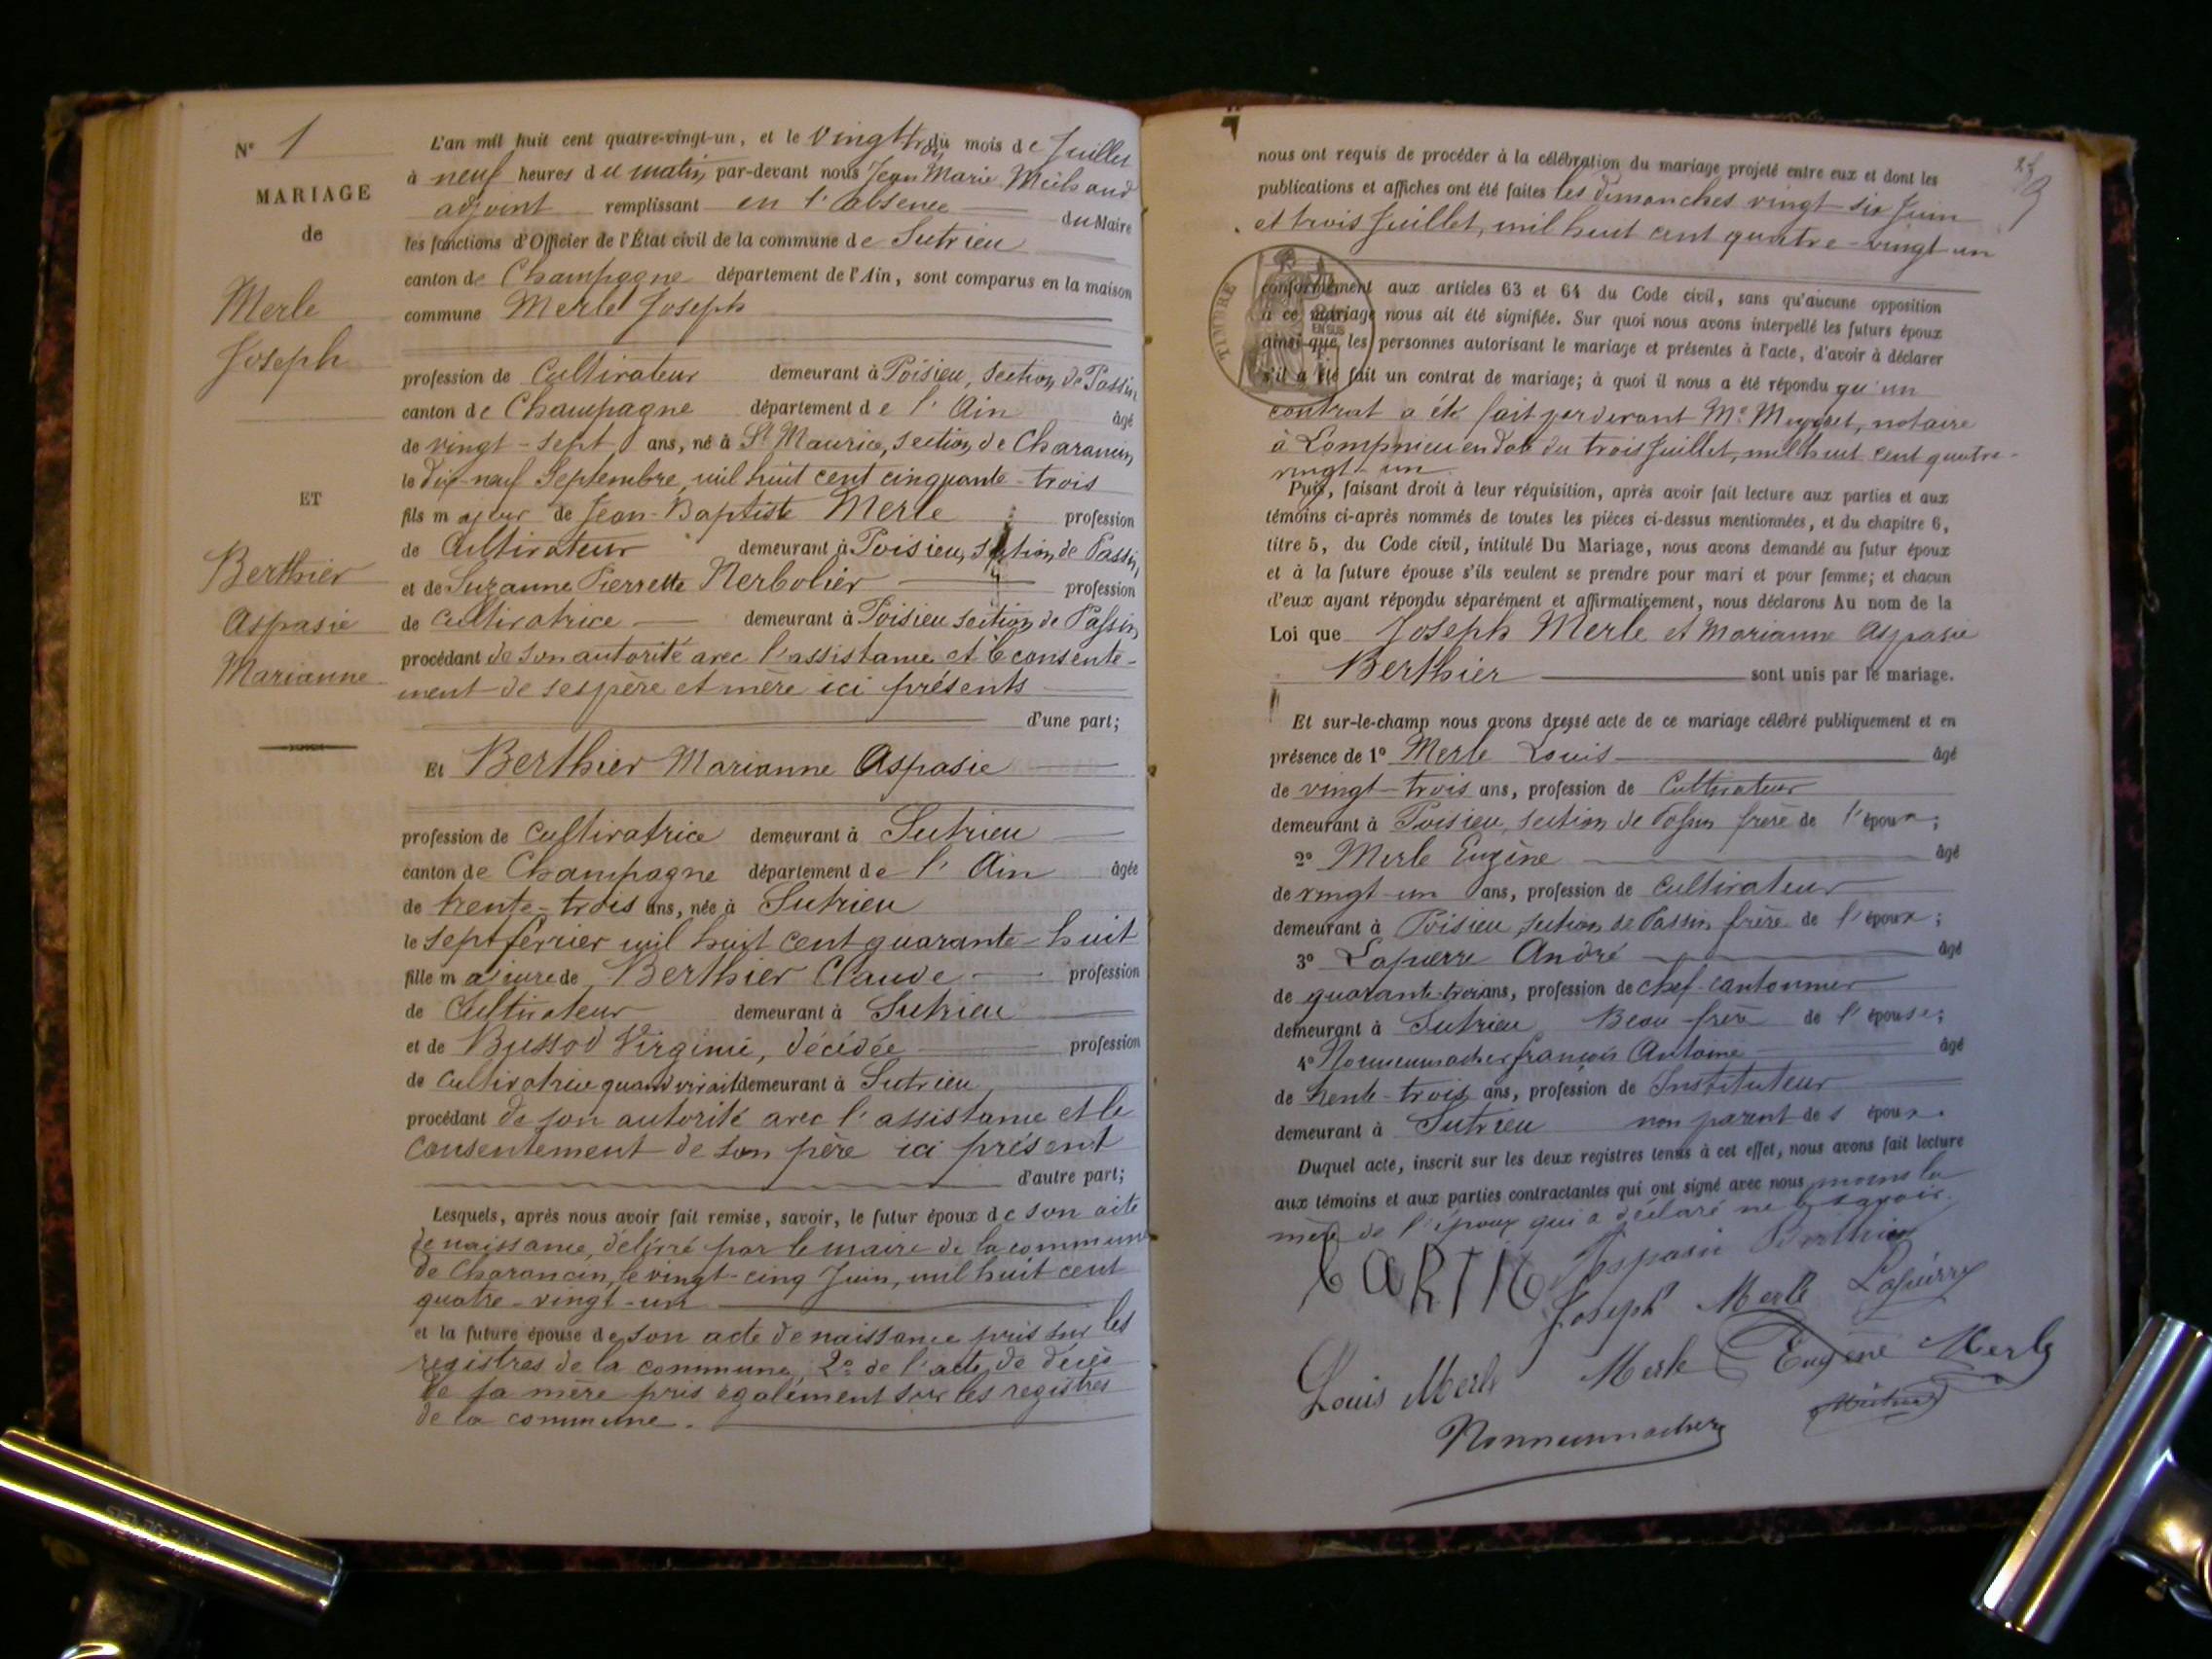 N° 1
MARIAGE
de
Merle
Joseph
ET
Berthier
Aspasie
Marianne
L'an mil huit cent quatre-vingt-un, et le vingt trois du mois de Juillet
à neuf heures du matin, par-devant nous Jean Marie Michaud
adjoint remplissant en l'absence du Maire
les fonctions d'Officier de l'État civil de la commune de Sutrieu
canton de Champagne département de l'Ain, sont comparus en la maison
commune Merle Joseph
profession de Cultivateur demeurant à Poisieu, section de Passin
canton de Champagne département de l'Ain âgé
de vingt-sept ans, né à St Maurice, section de Charancin,
le dix-neuf Septembre, mil huit cent cinquante-trois
fils majeur de Jean-Baptiste Merle profession
de Cultivateur demeurant à Poisieu, section de Passin,
et de Suzanne Pierrette Nerbolier profession
de cultivatrice demeurant à Poisieu section de Passin,
procédant de son autorité avec l'assistance et le consente-
ment de ses père et mère ici présents
d'une part;
Et Berthier Marianne Aspasie
profession de cultivatrice demeurant à Sutrieu
canton de Champagne département de l'Ain âgée
de trente-trois ans, née à Sutrieu
le sept février mil huit cent quarante-huit
fille majeure de Berthier Claude profession
de Cultivateur demeurant à Sutrieu
et de Bussod Virginie, décédée profession
de cultivatrice quand vivait demeurant à Sutrieu
procédant de son autorité avec l'assistance et le
consentement de son père ici présent
d'autre part;
Lesquels, après nous avoir fait remise, savoir, le futur époux de son acte
de naissance, délivré par le maire de la commune
de Charancin, le vingt-cinq Juin, mil huit cent
quatre-vingt-un
et la future épouse de son acte de naissance pris sur les
registres de la commune, 2° de l'acte de décès
de sa mère pris également sur les registres
de la commune.
nous ont requis de procéder à la célébration du mariage projeté entre eux et dont les
publications et affiches ont été faites les dimanches vingt-six Juin
et trois Juillet, mil huit cent quatre-vingt-un
TIMBRE
conformément aux articles 63 et 64 du Code civil, sans qu'aucune opposition
à ce mariage nous ait été signifiée. Sur quoi nous avons interpellé les futurs époux
ainsi que les personnes autorisant le mariage et présentes à l'acte, d'avoir à déclarer
s'il a été fait un contrat de mariage; à quoi il nous a été répondu qu'un
contrat a été fait par devant Me notaire
à Lompnieu en date du trois Juillet, mil huit cent quatre-
vingt-un
Puis, faisant droit à leur réquisition, après avoir fait lecture aux parties et aux
témoins ci-après nommés de toutes les pièces ci-dessus mentionnées, et du chapitre 6,
titre 5, du Code civil, intitulé Du Mariage, nous avons demandé au futur époux
et à la future épouse s'ils veulent se prendre pour mari et pour femme; et chacun
d'eux ayant répondu séparément et affirmativement, nous déclarons Au nom de la
Loi que Joseph Merle et Marianne Aspasie
Berthier sont unis par le mariage.
Et sur-le-champ nous avons dressé acte de ce mariage célébré publiquement et en
présence de 1° Merle Louis âgé
de vingt-trois ans, profession de Cultivateur
demeurant à Poisieu, section de Passin frère de l'époux;
2° Merle Eugène âgé
de vingt-un ans, profession de cultivateur
demeurant à Poisieu, section de Passin frère de l'époux;
3° Lapierre André âgé
de quarante-trois ans, profession de chef-cantonnier
demeurant à Sutrieu Beau-frère de l'épouse;
4° Nonnenmacher François Antoine âgé
de trente-trois ans, profession de Instituteur
demeurant à Sutrieu non parent des époux.
Duquel acte, inscrit sur les deux registres tenus à cet effet, nous avons fait lecture
aux témoins et aux parties contractantes qui ont signé avec nous moins la
mère de l'époux qui a déclaré ne le savoir.
Aspasie Berthier
Joseph Merle Lapierre
Louis Merle Merle Eugène Merle
Nonnenmacher Michaud